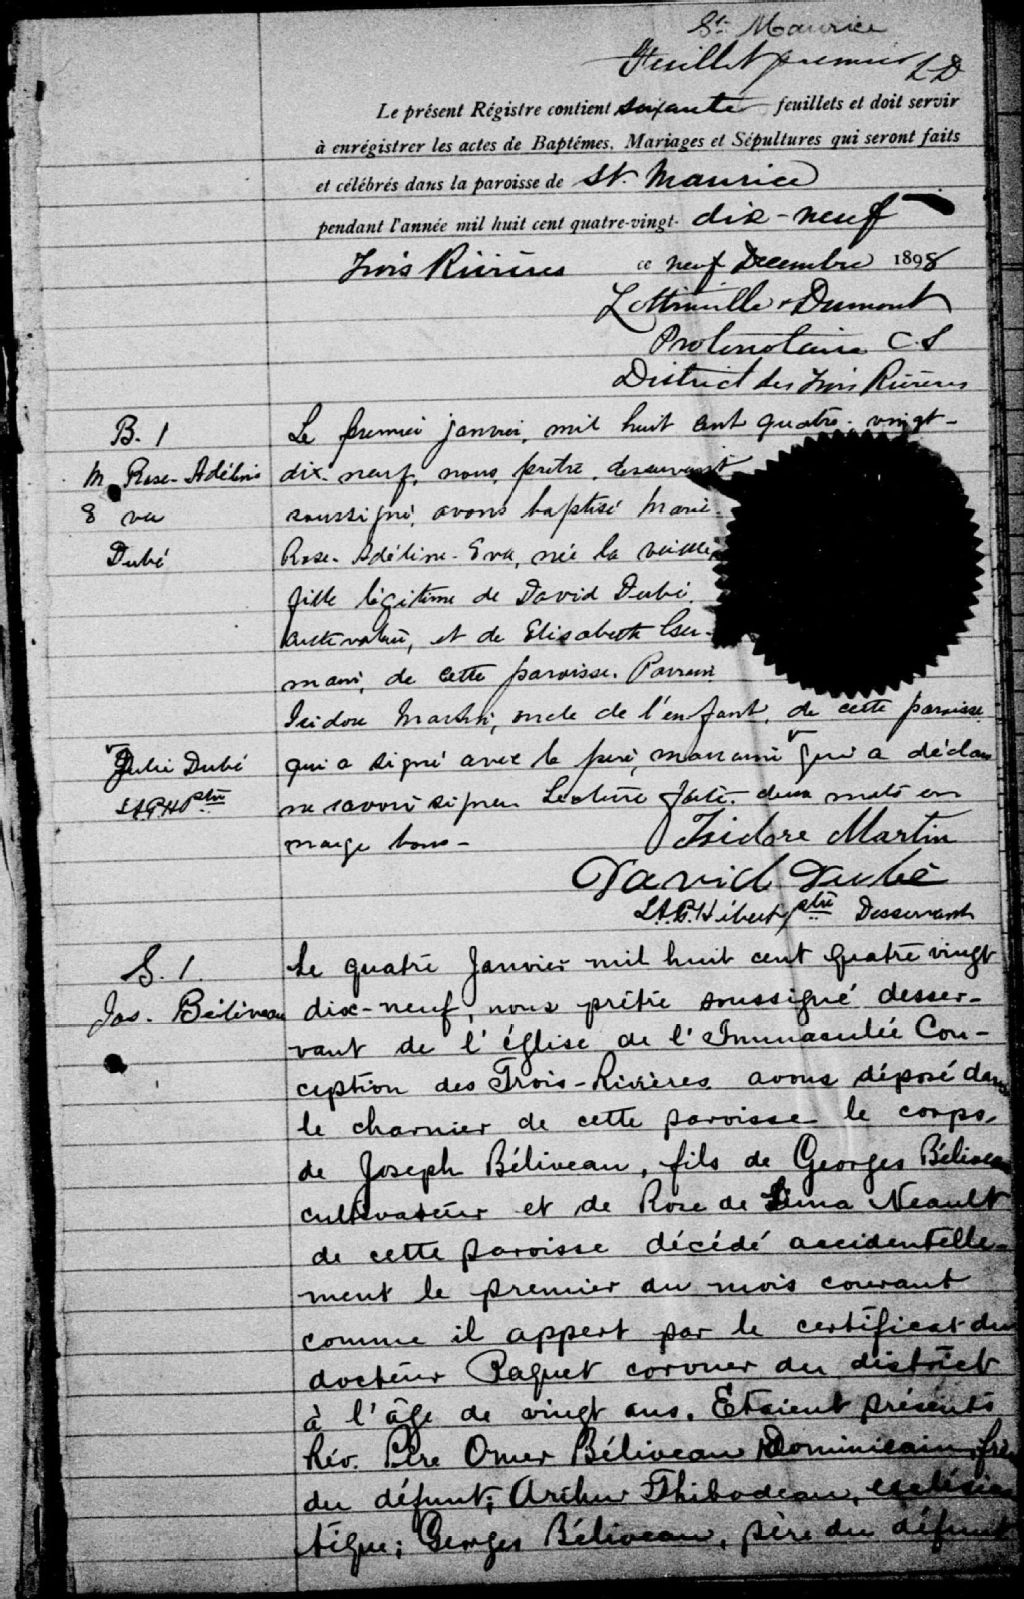 St. Maurice
Feuillet premier L D
Le présent Régistre contient soixante feuillets et doit servir
à enrégistrer les actes de Baptêmes, Mariages et Sépultures qui seront faits
et célébrés dans la paroisse de St. Maurice
pendant l'année mil huit cent quatre-vingt- dix-neuf
Trois Rivières ce neuf Decembre 1898
Lottinville & Dumont
Protonotaire C. S
District des Trois Rivières
B. 1
M. Rose-Adéline
Eva
Dubé
Le premier janvier, mil huit cent quatre-vingt-
dix-neuf, nous, prêtre, desservant
soussigné, avons baptisé Marie-
Rose-Adéline-Eva, née la veille,
fille légitime de David Dubé,
cultivateur, et de Elisabeth
de cette paroisse. Parrain
Isidore Martin, oncle de l'enfant, de cette paroisse
qui a signé avec le père, marraine √ qui a déclaré
√ Julie Dubé
L A P H ptre
ne savoir signer. Lecture faite. deux mots en
marge bons -
Isidore Martin
David Dubé
L.A.P. Hébert ptre Desservant
S. 1.
Jos. Béliveau
Le quatre Janvier mil huit cent quatre vingt
dix-neuf, nous prêtre soussigné desser-
vant de l'église de l'Immaculée Con-
ception des Trois-Rivières avons déposé dans
le charnier de cette paroisse le corps
de Joseph Béliveau, fils de Georges Béliveau
cultivateur et de Rose de Lima Neault
de cette paroisse décédé accidentelle-
ment le premier du mois courant
comme il appert par le certificat du
docteur Paquet coroner du district
à l'âge de vingt ans. Etaient présents
Rév. Père Omer Béliveau Dominicain, frère
du défunt; Arthur Thibodeau, ecclésias
tique; Georges Béliveau, père du défunt